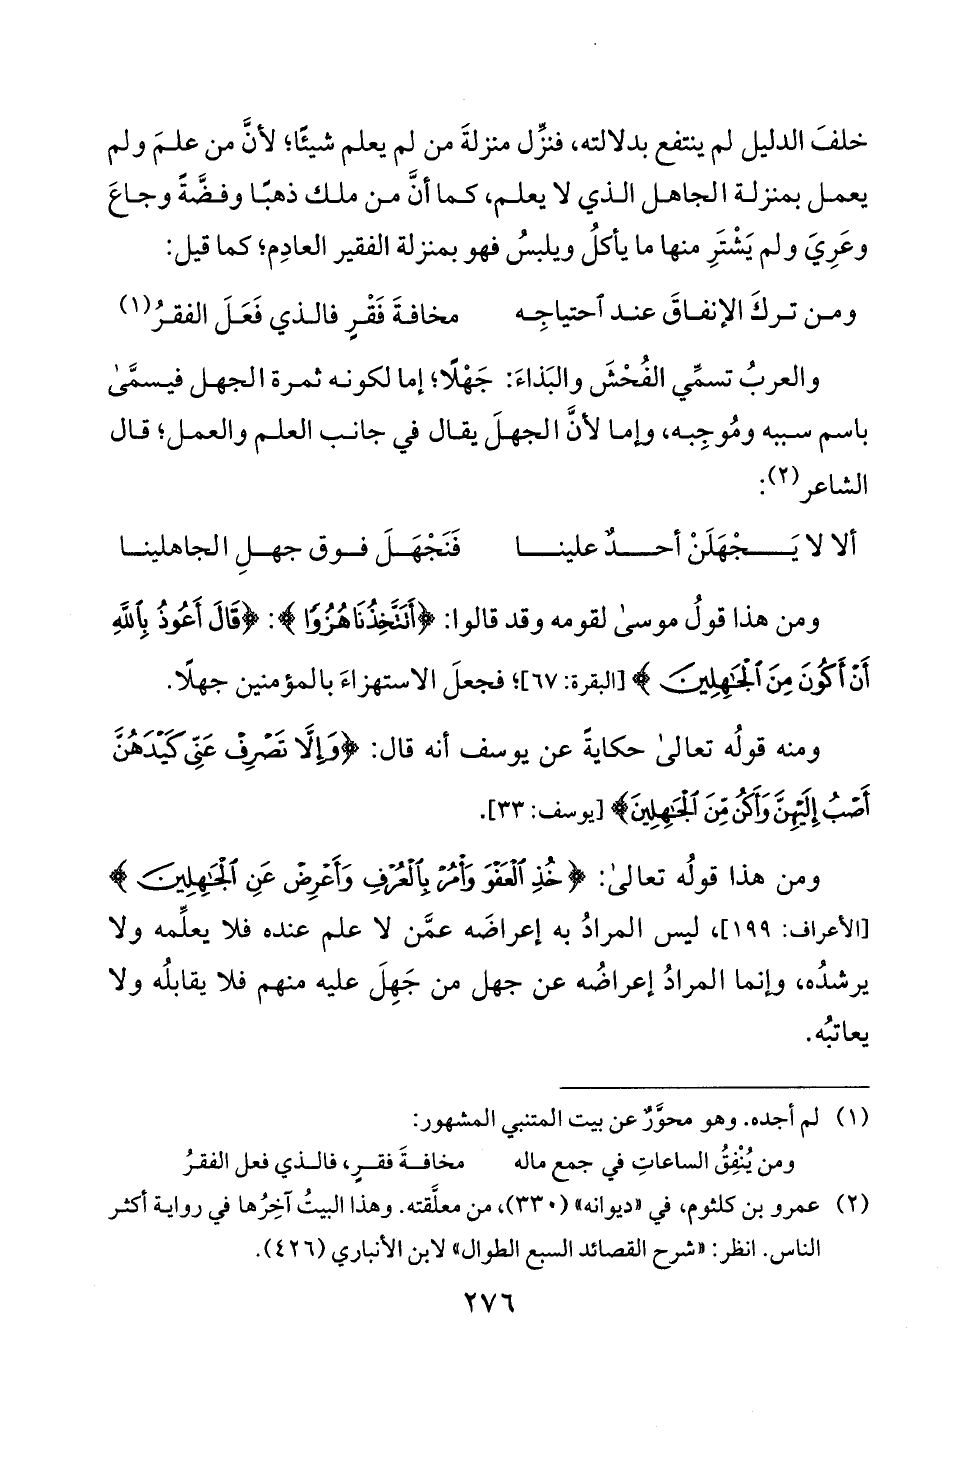 خلفَ الدليل لم ينتفع بدلالته، فنزِّل منزلةَ من لم يعلم شيئًا؛ لأنَّ من علمَ ولم
يعمل بمنزلة الجاهل الذي لا يعلم، كما أنَّ من ملك ذهبًا وفضَّةً وجاعَ
وعَرِيَ ولم يَشْتَرِ منها ما يأكلُ ويلبسُ فهو بمنزلة الفقير العادِم؛ كما قيل:
ومن تركَ الإنفاقَ عند ٱحتياجِه مخافةَ فَقْرٍ فالذي فَعَلَ الفقرُ(١)
والعربُ تسمِّي الفُحْشَ والبَذاءَ: جَهْلًا؛ إما لكونه ثمرة الجهل فيسمَّىٰ
باسم سببه ومُوجِبه، وإما لأنَّ الجهلَ يقال في جانب العلم والعمل؛ قال
الشاعر(٢):
ألا لا يَجْهَلَنْ أحدٌ علينا فَنَجْهَلَ فوق جهلِ الجاهلينا
ومن هذا قولُ موسىٰ لقومه وقد قالوا: ﴿أَتَتَّخِذُنَا هُزُوًا﴾: ﴿قَالَ أَعُوذُ بِٱللَّهِ
أَنْ أَكُونَ مِنَ ٱلْجَٰهِلِينَ﴾ [البقرة: ٦٧]؛ فجعلَ الاستهزاءَ بالمؤمنين جهلًا.
ومنه قولُه تعالىٰ حكايةً عن يوسف أنه قال: ﴿وَإِلَّا تَصْرِفْ عَنِّي كَيْدَهُنَّ
أَصْبُ إِلَيْهِنَّ وَأَكُن مِّنَ ٱلْجَٰهِلِينَ﴾ [يوسف: ٣٣].
ومن هذا قولُه تعالىٰ: ﴿خُذِ ٱلْعَفْوَ وَأْمُرْ بِٱلْعُرْفِ وَأَعْرِضْ عَنِ ٱلْجَٰهِلِينَ﴾
[الأعراف: ١٩٩]، ليس المرادُ به إعراضَه عمَّن لا علم عنده فلا يعلِّمه ولا
يرشدُه، وإنما المرادُ إعراضُه عن جهل من جَهِلَ عليه منهم فلا يقابلُه ولا
يعاتبُه.
(١) لم أجده. وهو محوَّرٌ عن بيت المتنبي المشهور:
ومن يُنْفِقُ الساعاتِ في جمع ماله مخافةَ فقرٍ، فالذي فعل الفقرُ
(٢) عمرو بن كلثوم، في «ديوانه» (٣٣٠)، من معلَّقته. وهذا البيتُ آخِرُها في رواية أكثر
الناس. انظر: «شرح القصائد السبع الطوال» لابن الأنباري (٤٢٦).
٢٧٦